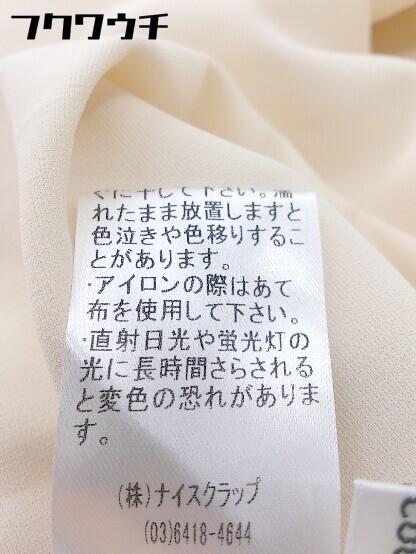 フクワウチ
ぐに干して下さい。濡
れたまま放置しますと
色泣きや色移りするこ
とがあります。
・アイロンの際はあて
布を使用して下さい。
・直射日光や蛍光灯の
光に長時間さらされる
と変色の恐れがありま
す。
(株)ナイスクラップ
(03)6418-4644